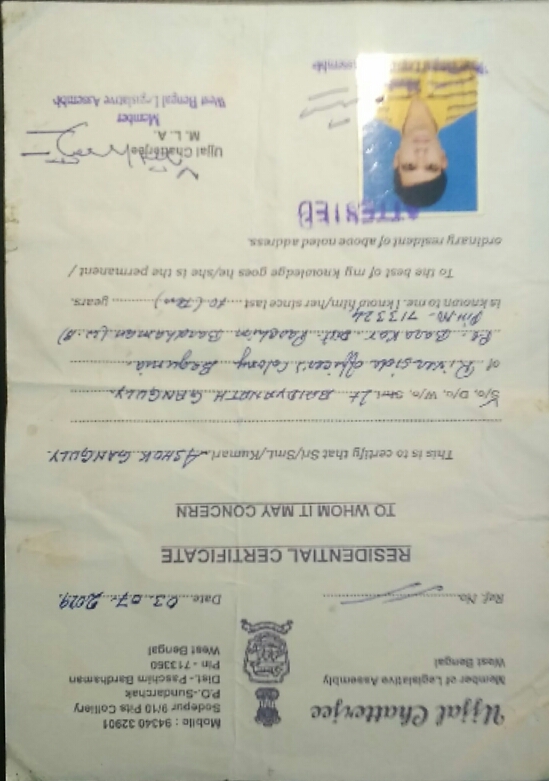 Ujjal Chatterjee
Member of Legislative Assembly
West Bengal
Mobile : 94340 32901
Sodepur 9/10 Pits Colliery
P.O.-Sundarchak
Dist.- Paschim Bardhaman
Pin - 713360
West Bengal
Ref. No.
Date 03.07.2019.
RESIDENTIAL CERTIFICATE
TO WHOM IT MAY CONCERN
This is to certify that Sri/Smt./Kumari ASHOK GANGULY.
S/o, D/o, W/o, Lt BAIDYANATH GANGULY.
of Riverside Officer's Colony Begunia.
Po- Barakar. Dist- Paschim Bardhaman (W.B)
Pin-No- 713324
is known to me. I know him/her since last 10 (Ten) years.
To the best of my knowledge goes he/she is the permanent /
ordinary resident of above noted address.
ATTESTED
Ujjal Chatterjee
M. L. A.
Member
West Bengal Legislative Assembly